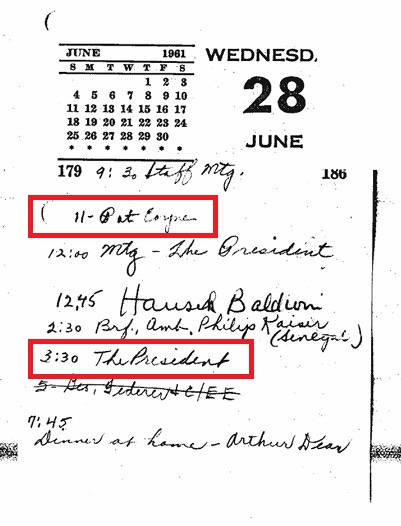 (
JUNE 1961
S M T W T F S
1 2 3
4 5 6 7 8 9 10
11 12 13 14 15 16 17
18 19 20 21 22 23 24
25 26 27 28 29 30
* * * * * * *
WEDNESD.
28
JUNE
179 9:30 Staff Mtg. 186
( 11- Pat Coyne
12:00 Mtg - The President
12,45 Baldwin
2:30 Brf, Amb. Philip Kaiser
(Senegal)
3:30 The President
5-
7:45
Dinner at home - Arthur Dean